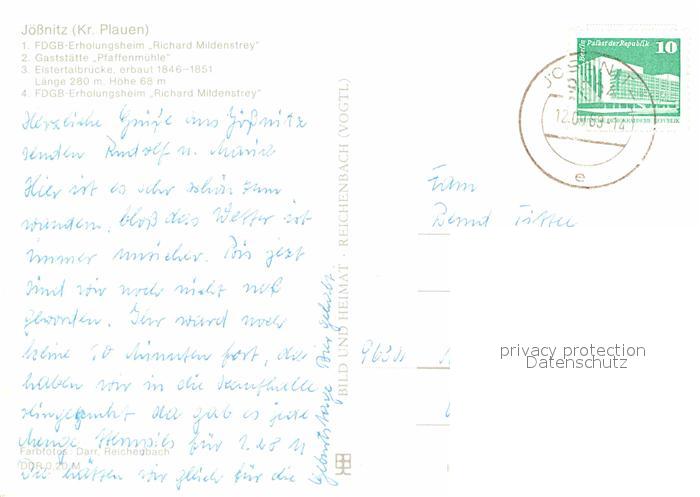 Jößnitz (Kr. Plauen)
1. FDGB-Erholungsheim „Richard Mildenstrey"
2. Gaststätte „Pfaffenmühle"
3. Elstertalbrücke, erbaut 1846–1851
Länge 280 m, Höhe 68 m
4. FDGB-Erholungsheim „Richard Mildenstrey"
Herzliche Grüße aus Jößnitz
senden Rudolf u. Maria
Hier ist es sehr schön zum
wandern, bloß das Wetter ist
immer unsicher. Bis jetzt
sind wir noch nicht naß
geworden. Ihr ward noch
keine 10 Minuten fort, da
haben wir in die Kaufhalle
da gab es jede
Menge für 1.28 M
Da hätten wir gleich für die
Geburtstage Bier gehabt.
Farbfotos: Darr, Reichenbach
DDR 0,20 M
BILD UND HEIMAT · REICHENBACH (VOGTL)
Berlin Palast der Republik 10
DEUTSCHE DEMOKRATISCHE REPUBLIK
JÖSSNITZ
e
Fam
Bernd
privacy protection
Datenschutz